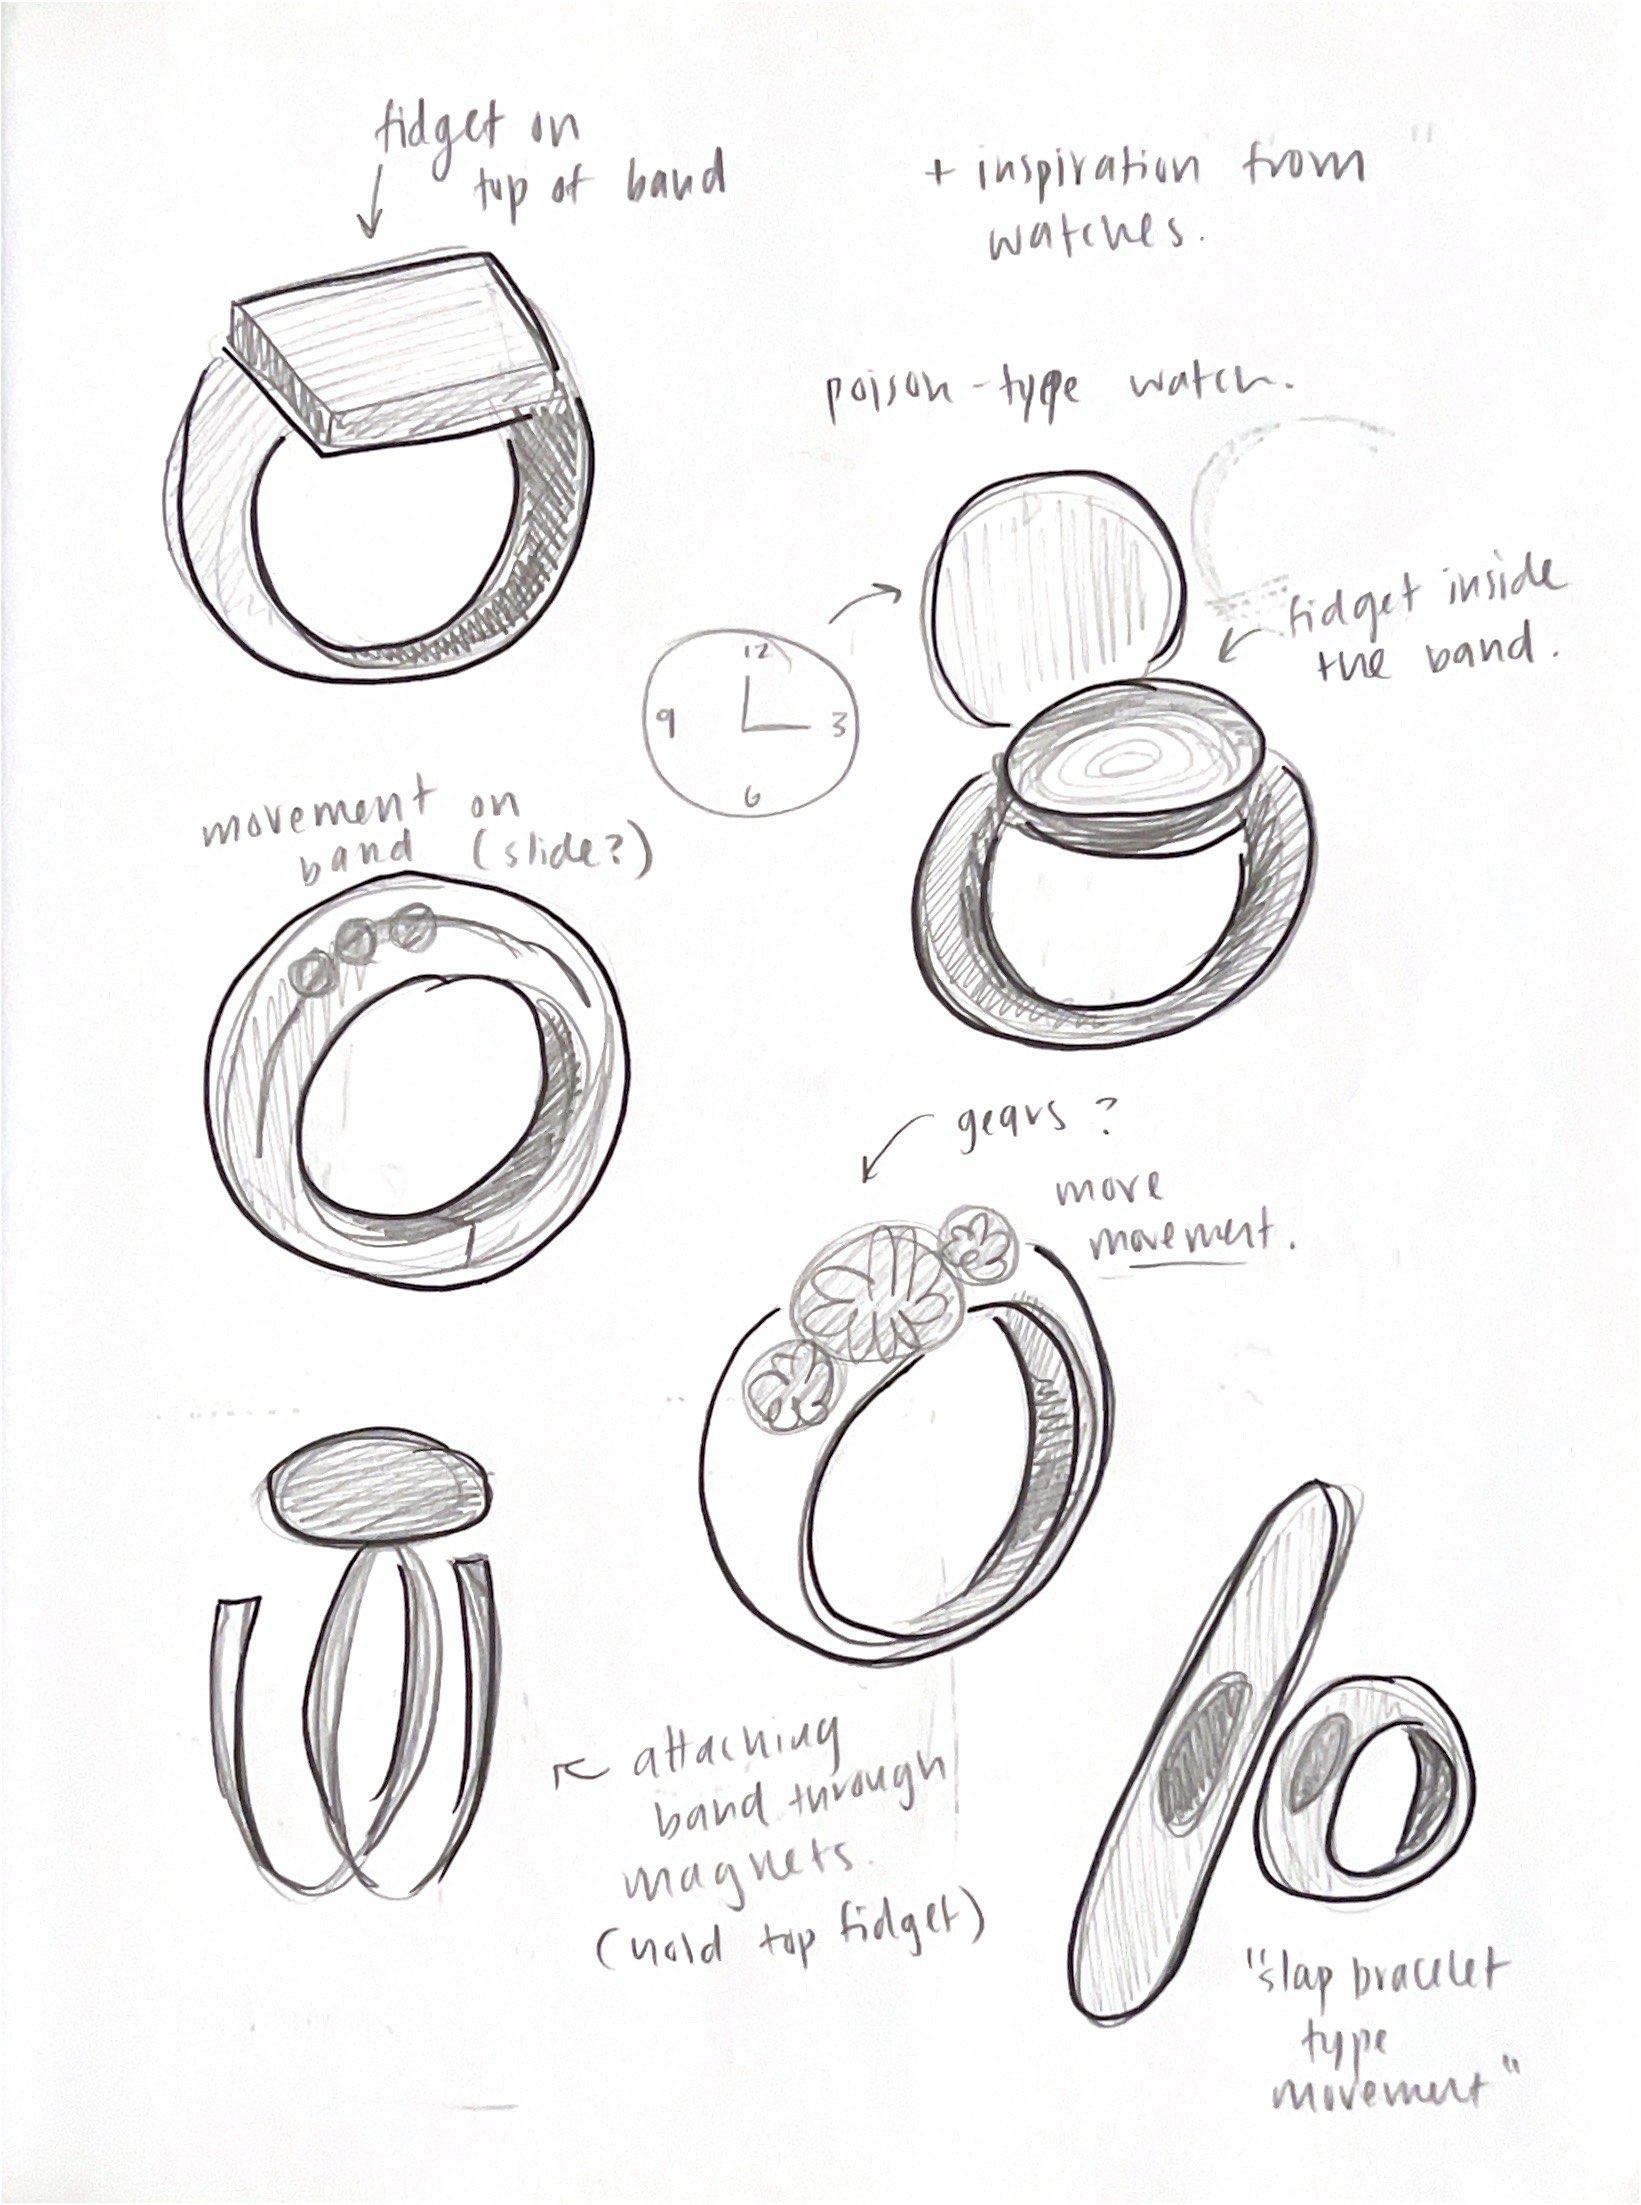 fidget on
top of band
+ inspiration from
watches.
poison-type watch.
fidget inside
the band.
12
9 3
6
movement on
band (slide?)
gears?
move
movement.
attaching
band through
magnets.
(hold top fidget)
"slap bracelet
type
movement"